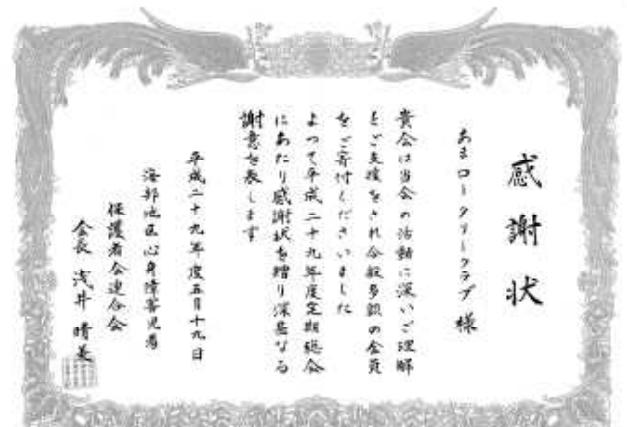 感謝状
あまロータリークラブ 様
貴会は当会の活動に深いご理解
とご支援をされ今般多額の金員
をご寄付くださいました
よって平成二十九年度定期総会
にあたり感謝状を贈り深甚なる
謝意を表します
平成二十九年度五月十九日
海部地区心身障害児者
保護者会連合会
会長 浅井 晴美